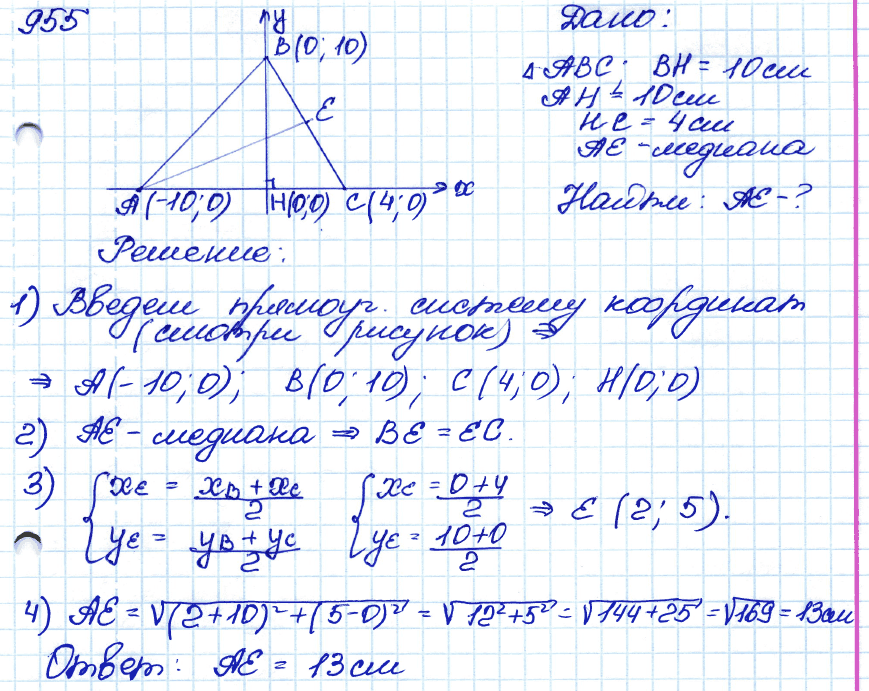 955
y
B(0; 10)
E
A(-10; 0)
H(0;0)
C(4; 0)
x
Дано:
△ABC; BH = 10см
AH = 10см
HC = 4см
AE - медиана
Найти: AE - ?
Решение:
1) Введем прямоуг. систему координат
(смотри рисунок) ⇒
⇒ A(-10; 0); B(0; 10); C(4; 0); H(0; 0)
2) AE - медиана ⇒ BE = EC.
3) { xE = (xB + xC)/2 { xE = (0+4)/2 ⇒ E (2; 5).
yE = (yB + yC)/2 yE = (10+0)/2
4) AE = √(2+10)² + (5-0)² = √12² + 5² = √144+25 = √169 = 13см
Ответ: AE = 13см